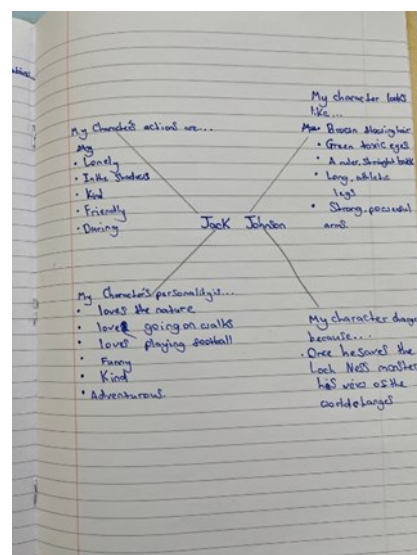 My Character's actions are...
My
• Lonely
• In the shadows
• Kind
• Friendly
• Daring
My character looks
like...
• Brown flowing hair
• Green toxic eyes
• A nder, straight back
• Long, athletic
legs
• Strong, powerful
arms.
Jack Johnson
My Character's personality is...
• loves the nature
• loves going on walks
• loves playing football
• Funny
• Kind
• Adventurous.
My character change
because...
• Once he saves the
Loch Ness monster
his view of the
world changes